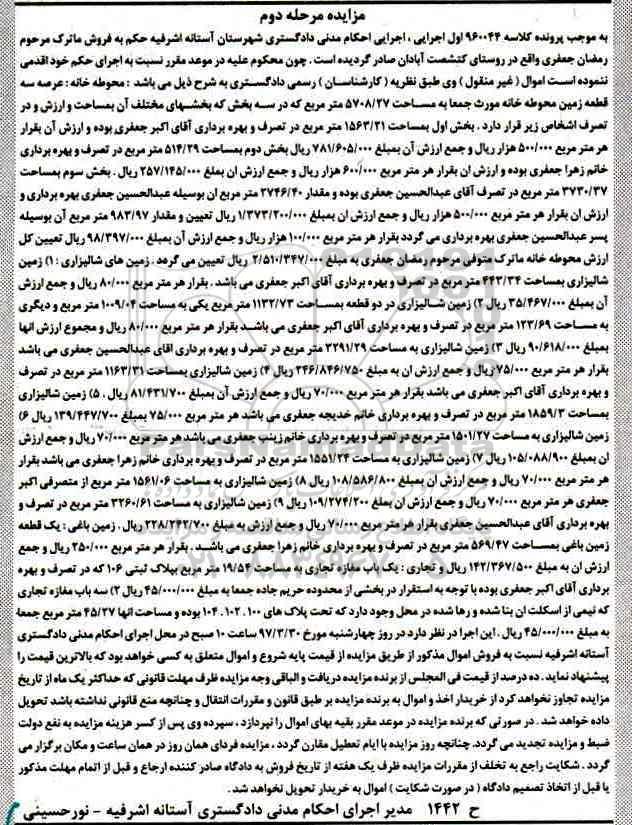 مزایده مرحله دوم
به موجب پرونده کلاسه ۹۶۰۰۴۴ اول اجرایی ، اجرایی احکام مدنی دادگستری شهرستان آستانه اشرفیه حکم به فروش ماترک مرحوم
رمضان جعفری واقع در روستای کتشصت آبادان صادر گردیده است . چون محکوم علیه در موعد مقرر نسبت به اجرای حکم خود اقدمی
ننموده است اموال ( غیر منقول ) وی طبق نظریه ( کارشناسان ) رسمی دادگستری به شرح ذیل می باشد : محوطه خانه : عرصه سه
قطعه زمین محوطه خانه مورث جمعا به مساحت ۵۷۰۸/۲۷ متر مربع که در سه بخش که بخشهای مختلف آن بمساحت و ارزش و در
تصرف اشخاص زیر قرار دارد . بخش اول بمساحت ۱۵۶۳/۲۱ متر مربع در تصرف و بهره برداری آقای اکبر جعفری بوده و ارزش آن بقرار
هر متر مربع ۵۰۰/۰۰۰ هزار ریال و جمع ارزش آن بمبلغ ۷۸۱/۶۰۵/۰۰۰ ریال بخش دوم بمساحت ۵۱۴/۲۹ متر مربع در تصرف و بهره برداری
خانم زهرا جعفری بوده و ارزش ان بقرار هر متر مربع ۶۰۰/۰۰۰ هزار ریال و جمع ارزش ان بمبلغ ۲۵۷/۱۴۵/۰۰۰ ریال . بخش سوم بمساحت
۳۷۳۰/۳۷ متر مربع در تصرف آقای عبدالحسین جعفری بوده و مقدار ۲۷۴۶/۴۰ متر مربع ان بوسیله عبدالحسین جعفری بهره برداری و
ارزش ان بقرار هر متر مربع ۵۰۰/۰۰۰ هزار ریال و جمع ارزش ان بمبلغ ۱/۳۷۳/۲۰۰/۰۰۰ ریال تعیین و مقدار ۹۸۳/۹۷ متر مربع آن بوسیله
پسر عبدالحسین جعفری بهره برداری می گردد بقرار هر متر مربع ۱۰۰/۰۰۰ هزار ریال و جمع ارزش آن بمبلغ ۹۸/۳۹۷/۰۰۰ ریال تعیین کل
ارزش محوطه خانه ماترک متوفی مرحوم رمضان جعفری به مبلغ ۲/۵۱۰/۳۴۷/۰۰۰ ریال تعیین می گردد . زمین های شالیزاری : ۱) زمین
شالیزاری بمساحت ۴۴۳/۳۴ متر مربع در تصرف و بهره برداری آقای اکبر جعفری می باشد . بقرار هر متر مربع ۸۰/۰۰۰ ریال و جمع ارزش
آن بمبلغ ۳۵/۴۶۷/۰۰۰ ریال ۲) زمین شالیزاری در دو قطعه بمساحت ۱۱۳۲/۷۳ متر مربع یکی به مساحت ۱۰۰۹/۰۴ متر مربع و دیگری
به مساحت ۱۲۳/۶۹ متر مربع در تصرف و بهره برداری آقای اکبر جعفری می باشد بقرار هر متر مربع ۸۰/۰۰۰ ریال و مجموع ارزش انها
بمبلغ ۹۰/۶۱۸/۰۰۰ ریال ۳) زمین شالیزاری به مساحت ۳۲۹۱/۲۹ متر مربع در تصرف و بهره برداری اقای عبدالحسین جعفری می باشد
بقرار هر متر مربع ۷۵/۰۰۰ ریال و جمع ارزش ان به مبلغ ۲۴۶/۸۴۶/۷۵۰ ریال ۴) زمین شالیزاری بمساحت ۱۱۶۳/۳۱ متر مربع در تصرف
و بهره برداری آقای اکبر جعفری می باشد بقرار هر متر مربع ۷۰/۰۰۰ ریال و جمع ارزش آن بمبلغ ۸۱/۴۳۱/۷۰۰ ریال . ۵) زمین شالیزاری
بمساحت ۱۸۵۹/۳ متر مربع در تصرف و بهره برداری خانم خدیجه جعفری می باشد هر متر مربع ۷۵/۰۰۰ بمبلغ ۱۳۹/۴۴۷/۷۰۰ ریال ۶)
زمین شالیزاری به مساحت ۱۵۰۱/۲۷ متر مربع در تصرف و بهره برداری خانم زینب جعفری می باشد هر متر مربع ۷۰/۰۰۰ ریال و جمع ارزش
ان بمبلغ ۱۰۵/۰۸۸/۹۰۰ ریال ۷) زمین شالیزاری به مساحت ۱۵۵۱/۲۴ متر مربع در تصرف و بهره برداری خانم زهرا جعفری می باشد بقرار
هر متر مربع ۷۰/۰۰۰ ریال و جمع ارزش ان بمبلغ ۱۰۸/۵۸۶/۸۰۰ ریال ۸) زمین شالیزاری به مساحت ۱۵۶۱/۰۶ متر مربع از متصرفی اکبر
جعفری هر متر مربع ۷۰/۰۰۰ ریال و جمع ارزش ان بمبلغ ۱۰۹/۲۷۴/۲۰۰ ریال ۹) زمین شالیزاری به مساحت ۳۲۶۰/۶۱ متر مربع در تصرف و
بهره برداری آقای عبدالحسین جعفری بقرار هر متر مربع ۷۰/۰۰۰ ریال و جمع ارزش به مبلغ ۲۲۸/۲۴۲/۷۰۰ ریال . زمین باغی : یک قطعه
زمین باغی بمساحت ۵۶۹/۴۷ متر مربع در تصرف و بهره برداری خانم زهرا جعفری می باشد . بقرار هر متر مربع ۲۵۰/۰۰۰ ریال و جمع
ارزش ان به مبلغ ۱۴۲/۳۶۷/۵۰۰ ریال و تجاری : یک باب مغازه تجاری به مساحت ۱۹/۵۴ متر مربع بپلاک ثبتی ۱۰۶ که در تصرف و بهره
برداری آقای اکبر جعفری بوده با توجه به استقرار در بخشی از محدوده حریم جاده جمعا به مبلغ ۴۵/۰۰۰/۰۰۰ ریال ۲) سه باب مغازه تجاری
که نیمی از اسکلت ان بنا شده و رها شده در محل وجود دارد که تحت پلاک های ۱۰۰ . ۱۰۲ . ۱۰۴ بوده و مساحت انها ۴۵/۲۷ متر مربع جمعا
به مبلغ ۴۵/۰۰۰/۰۰۰ ریال . این اجرا در نظر دارد در روز چهارشنبه مورخ ۹۷/۳/۳۰ ساعت ۱۰ صبح در محل اجرای احکام مدنی دادگستری
آستانه اشرفیه نسبت به فروش اموال مذکور از طریق مزایده از قیمت پایه شروع و اموال متعلق به کسی خواهد بود که بالاترین قیمت را
پیشنهاد نماید . ده درصد از قیمت فی المجلس از برنده مزایده دریافت و الباقی وجه مزایده ظرف مهلت قانونی که حداکثر یک ماه از تاریخ
مزایده تجاوز نخواهد کرد از خریدار اخذ و اموال به برنده مزایده بر طبق قانون و مقررات انتقال و چنانچه منع قانونی نداشته باشد تحویل
داده خواهد شد . در صورتی که برنده مزایده در موعد مقرر بقیه بهای اموال را نپردازد ، سپرده وی پس از کسر هزینه مزایده به نفع دولت
ضبط و مزایده تجدید می گردد. چنانچه روز مزایده با ایام تعطیل مقارن گردد ، مزایده فردای همان روز در همان ساعت و مکان برگزار می
گردد . شکایت راجع به تخلف از مقررات مزایده ظرف یک هفته از تاریخ فروش به دادگاه صادر کننده ارجاع و قبل از اتمام مهلت مذکور
یا قبل از اتخاذ تصمیم دادگاه ( در صورت شکایت ) اموال به خریدار تحویل نخواهد شد .
ح ۱۴۴۲ مدیر اجرای احکام مدنی دادگستری آستانه اشرفیه - نورحسینی